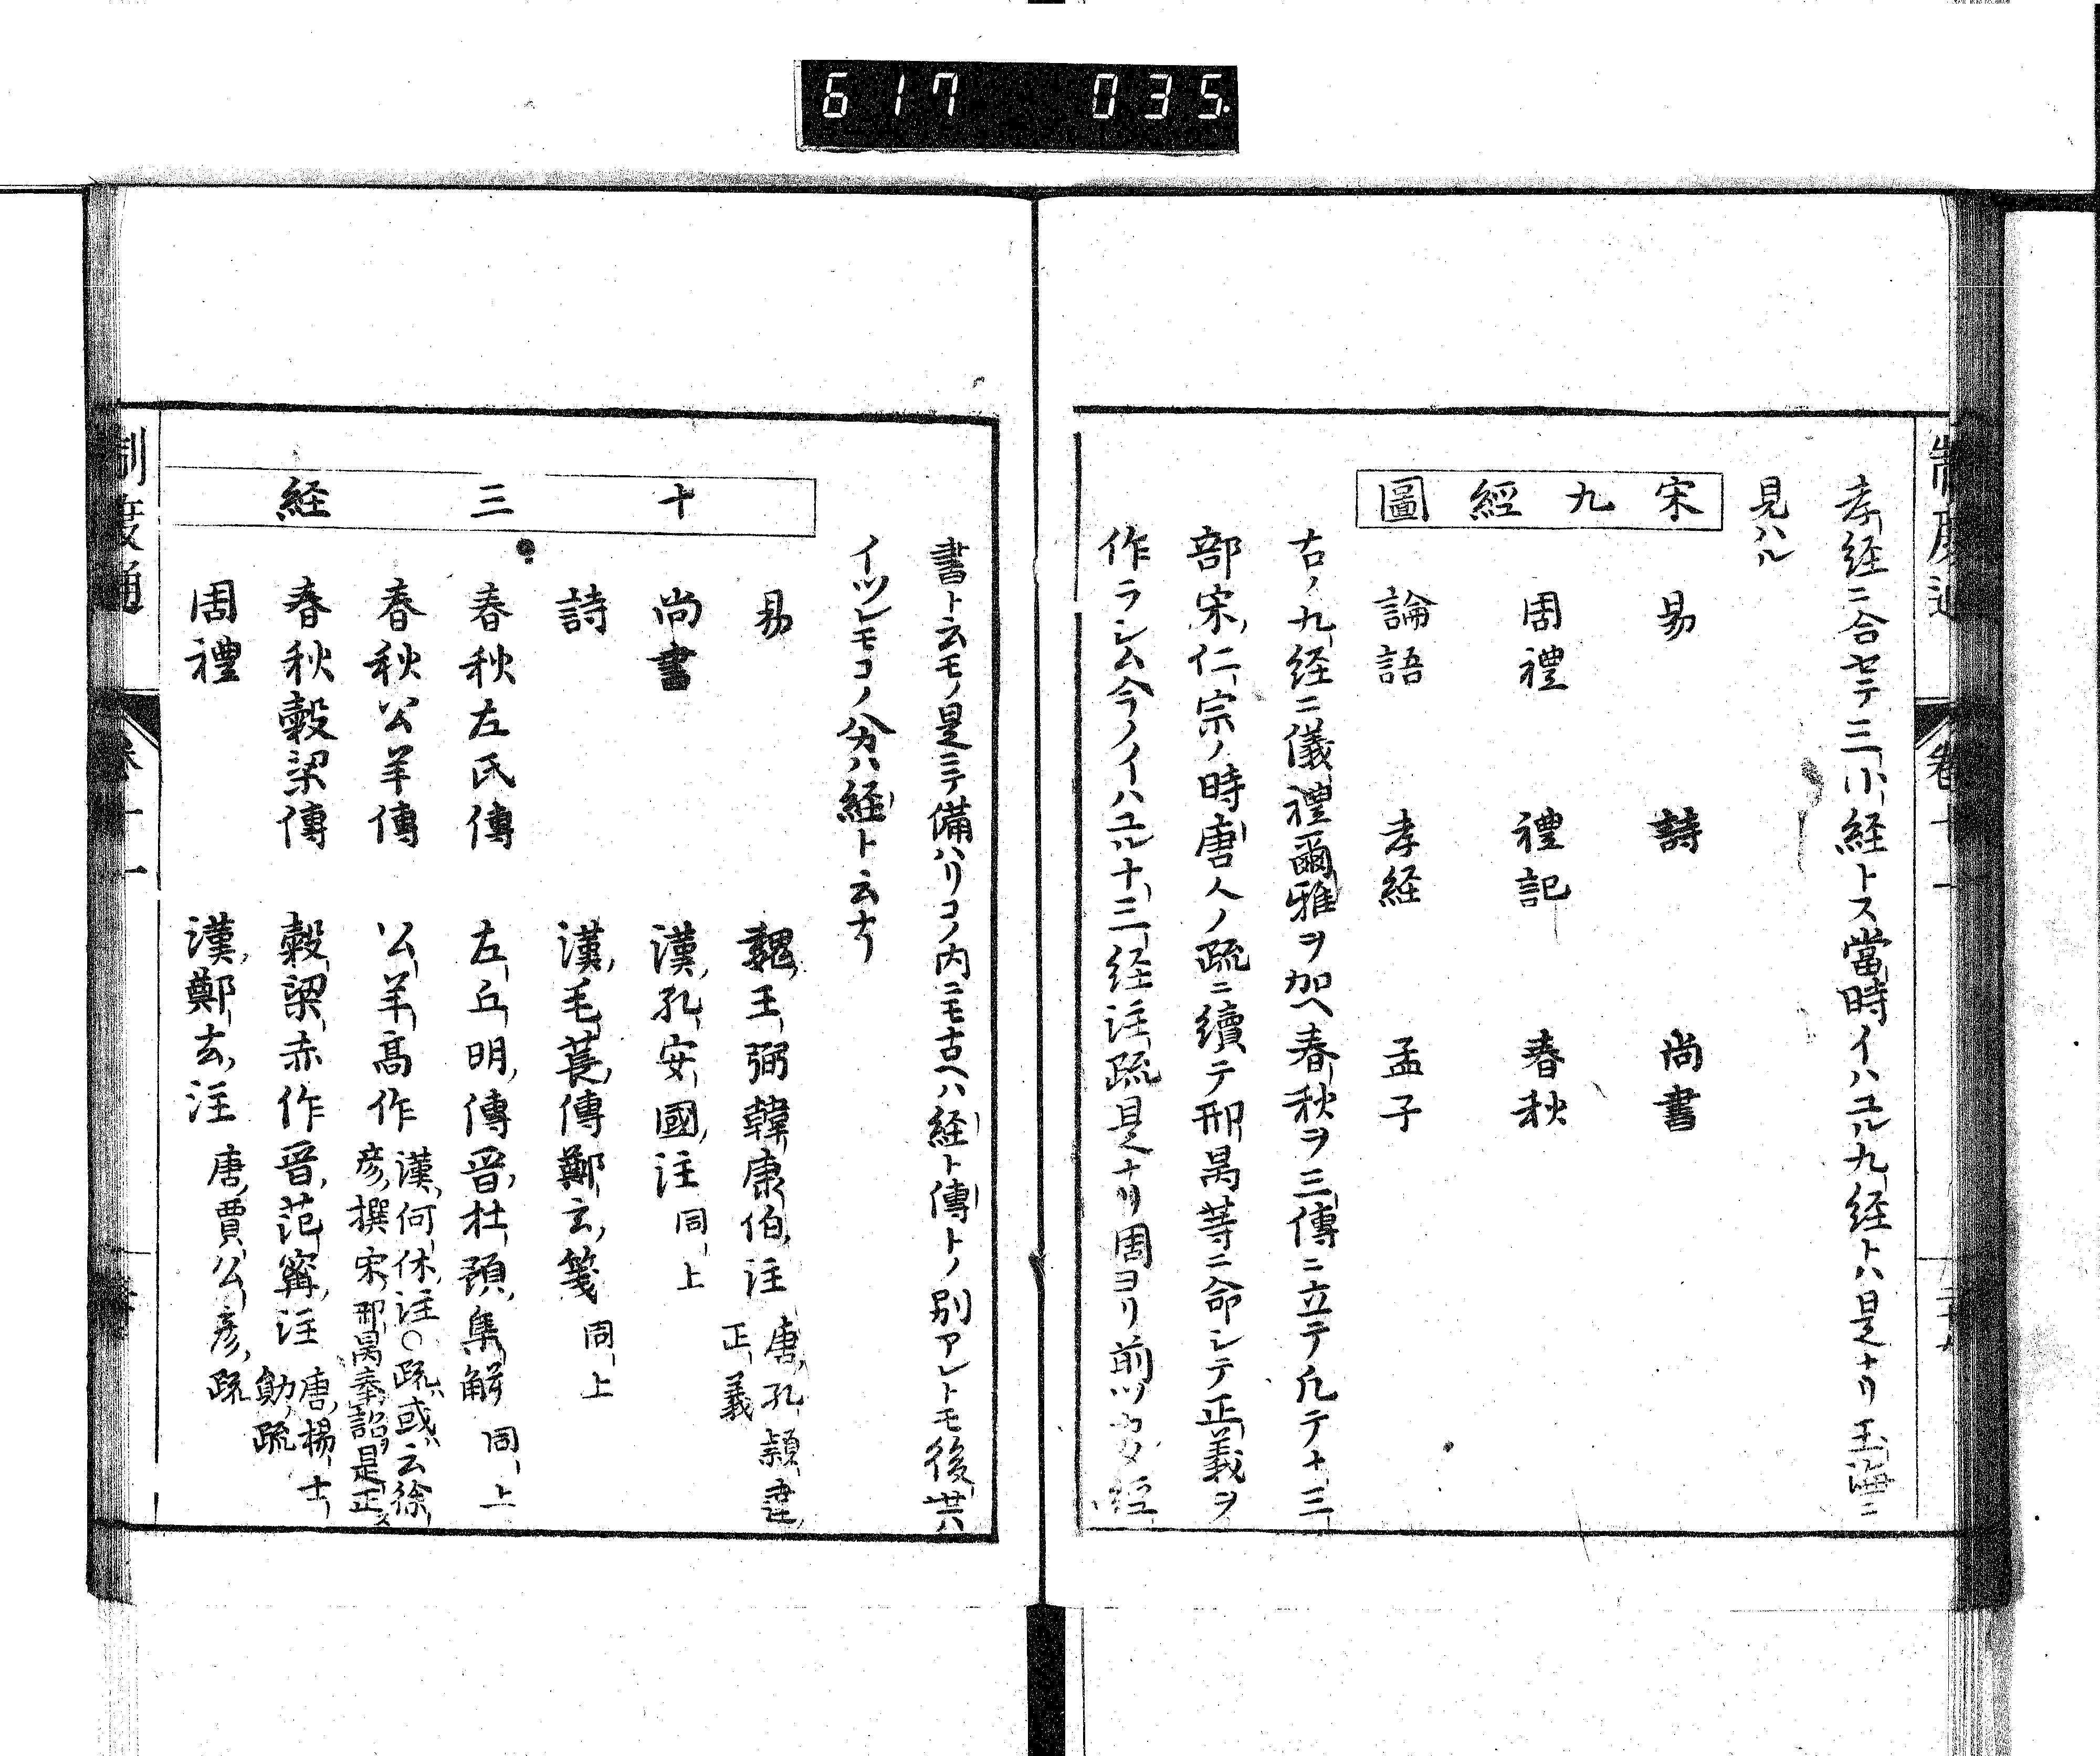 617 035
制度通 巻十一
孝経ニ合セテ三小経トス當時イハユル九経トハ是ナリ玉海ニ
見ハル
宋九經圖
易 詩 尚書
周禮 禮記 春秋
論語 孝経 孟子
古ノ九経ニ儀禮爾雅ヲ加ヘ春秋ヲ三傳ニ立テ凡テ十三
部宋仁宗ノ時唐人ノ疏ニ續テ邢昺等ニ命シテ正義ヲ
作ラシム今ノイハユル十三経注疏是ナリ周ヨリ前ツカタ経
書ト云モノ是ニテ備ハリコノ内ニモ古ヘハ経ト傳トノ別アレトモ後世ハ
イツレモコノ分ハ経ト云ナリ
十三経
易 魏王弼韓康伯注 唐孔穎達正義
尚書 漢孔安國注 同上
詩 漢毛萇傳鄭玄箋 同上
春秋左氏傳 左丘明傳晋杜預集解 同上
春秋公羊傳 公羊高作 漢何休注○疏或云徐彦撰宋邢昺奉詔是正ス
春秋穀梁傳 穀梁赤作晋范甯注 唐楊士勛疏
周禮 漢鄭玄注 唐賈公彦疏
制度通 巻十一